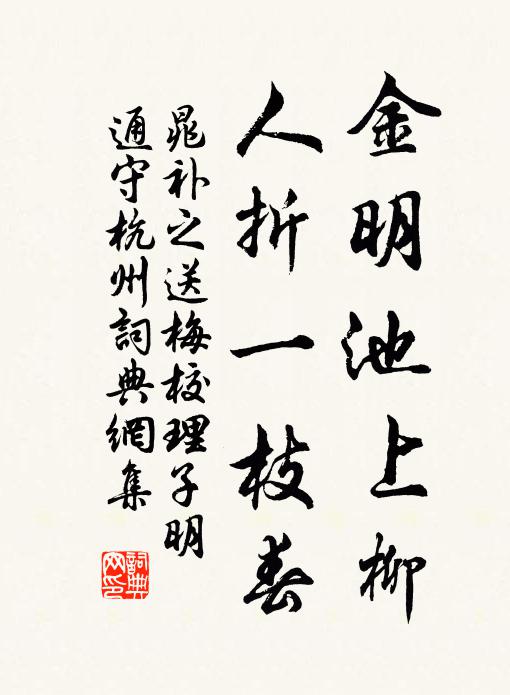 金明池上柳
人折一枝春
晁补之送梅校理子明
通守杭州詞典網集
詞典
网印